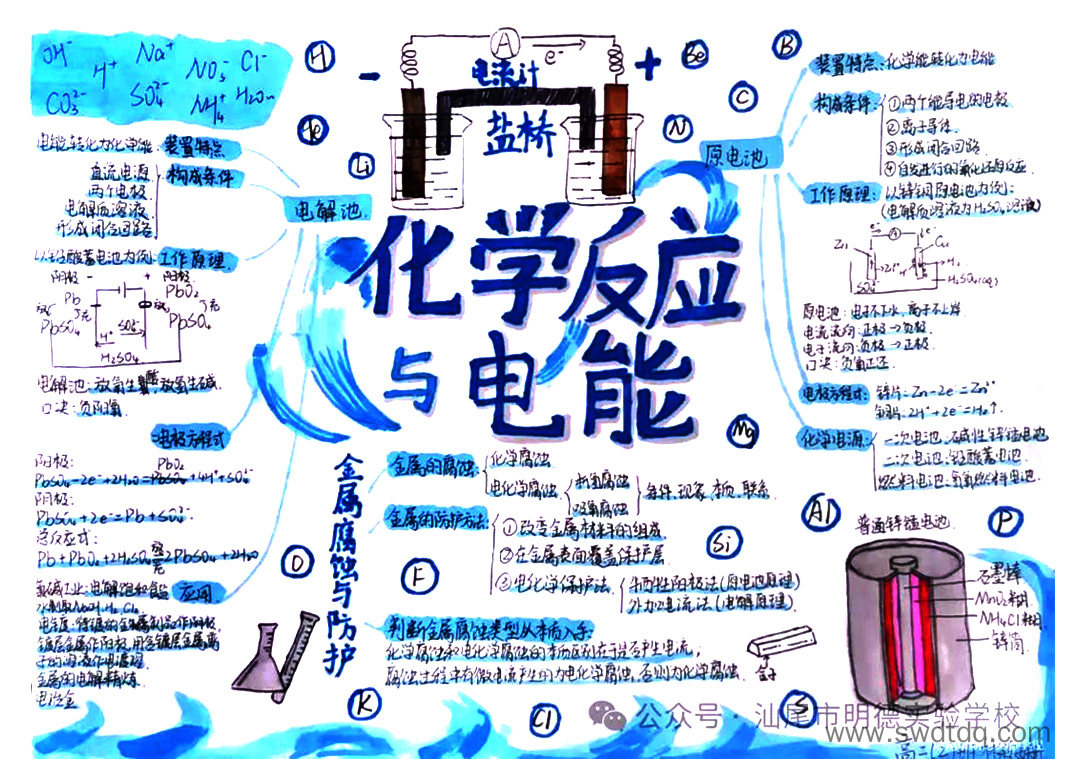 OH⁻ H⁺ Na⁺ NO₃⁻ Cl⁻
CO₃²⁻ SO₄²⁻ NH₄⁺ H₂O
电能转化为化学能：装置特点
构成条件
直流电源
两个电极
电解质溶液
形成闭合回路
电解池
以铅酸蓄电池为例：工作原理
阴极 - + 阳极
Pb PbO₂
PbSO₄ PbSO₄
H⁺ SO₄²⁻
H₂SO₄
口诀：负阴氧
电极方程式
阳极：
PbO₂
阴极：
PbSO₄+2e⁻=Pb+SO₄²⁻
总反应式：
Pb+PbO₂+2H₂SO₄ 2PbSO₄+2H₂O
应用
氯碱工业：电解饱和食盐
水制取NaOH、H₂、Cl₂
金属的电解精炼
电冶金
H He Li Be B C N O F
Mg Al Si P S Cl K
- A e⁻ +
电流计
盐桥
化学反应
与电能
原电池
装置特点：化学能转化为电能
构成条件：①两个能导电的电极
②离子导体
③形成闭合回路
④自发进行的氧化还原反应
工作原理：以锌铜原电池为例：
(电解质溶液为H₂SO₄溶液)
e⁻ A e⁻
Zn Cu
Zn²⁺ H⁺ H₂
SO₄²⁻ H₂SO₄(aq)
原电池：电子不下水，离子不上岸
电流流向：正极→负极
电子流向：负极→正极
口诀：负氧正还
电极方程式：锌片：Zn-2e⁻=Zn²⁺
铜片：2H⁺+2e⁻=H₂↑
化学电源：一次电池：碱性锌锰电池
二次电池：铅酸蓄电池
燃料电池：氢氧燃料电池
金属腐蚀与防护
金属的腐蚀：化学腐蚀
电化学腐蚀：析氢腐蚀
吸氧腐蚀
条件、现象、本质、联系
金属的防护方法：①改变金属材料的组成
②在金属表面覆盖保护层
③电化学保护法：牺牲性阳极法(原电池原理)
外加电流法(电解原理)
判断金属腐蚀类型从本质入手：
化学腐蚀和电化学腐蚀的本质区别在于是否产生电流，
腐蚀过程中有微电流产生的为电化学腐蚀，否则为化学腐蚀
普通锌锰电池
石墨棒
MnO₂糊
NH₄Cl糊
锌筒
公众号·汕尾市明德实验学校
www.swdtdq.com